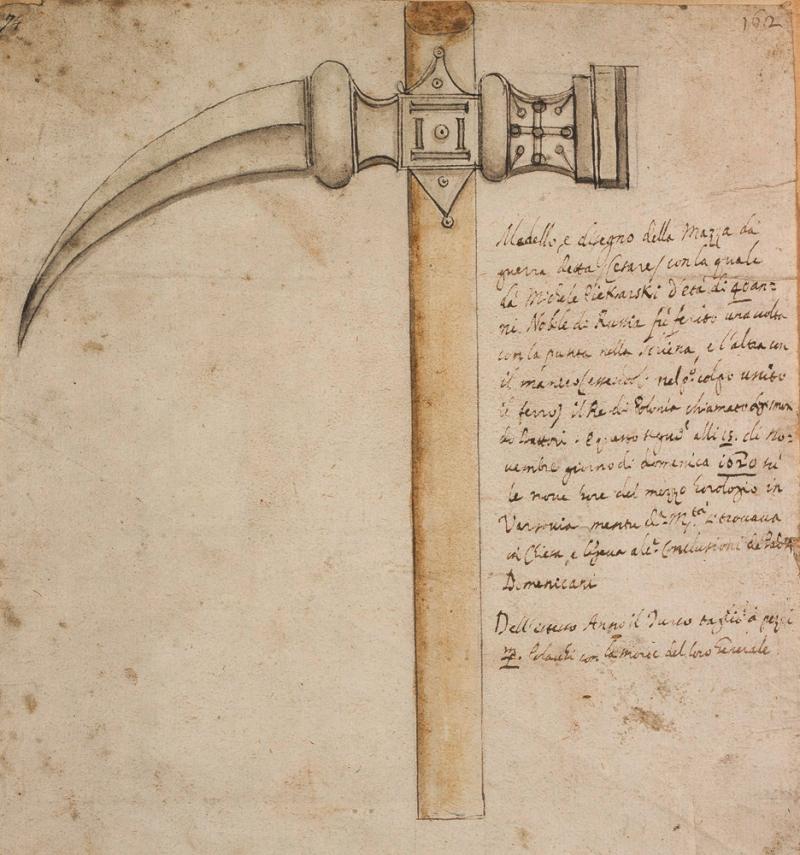 74
162
Modello, e disegno della Mazza da
guerra detta (Cesare) con la quale
da Michele Piekarski d'età di 40 an=
ni. Nobile di Russia fù ferito una volta
con la punta nella schiena, e l'altra con
il manico nel colpo unito
il ferro) il Re di Polonia chiamato
do Battori. E questo seguì alli 15. di no=
uembre giorno di domenica 1620 sù
le noue hore del mezzo horologio in
Varsouia mentre si trouaua
in Chiesa, e Conclusioni
Domenicani
Dell'istesso Anno il Turco tagliò à pezzi
Polacchi con la morte del loro Generale